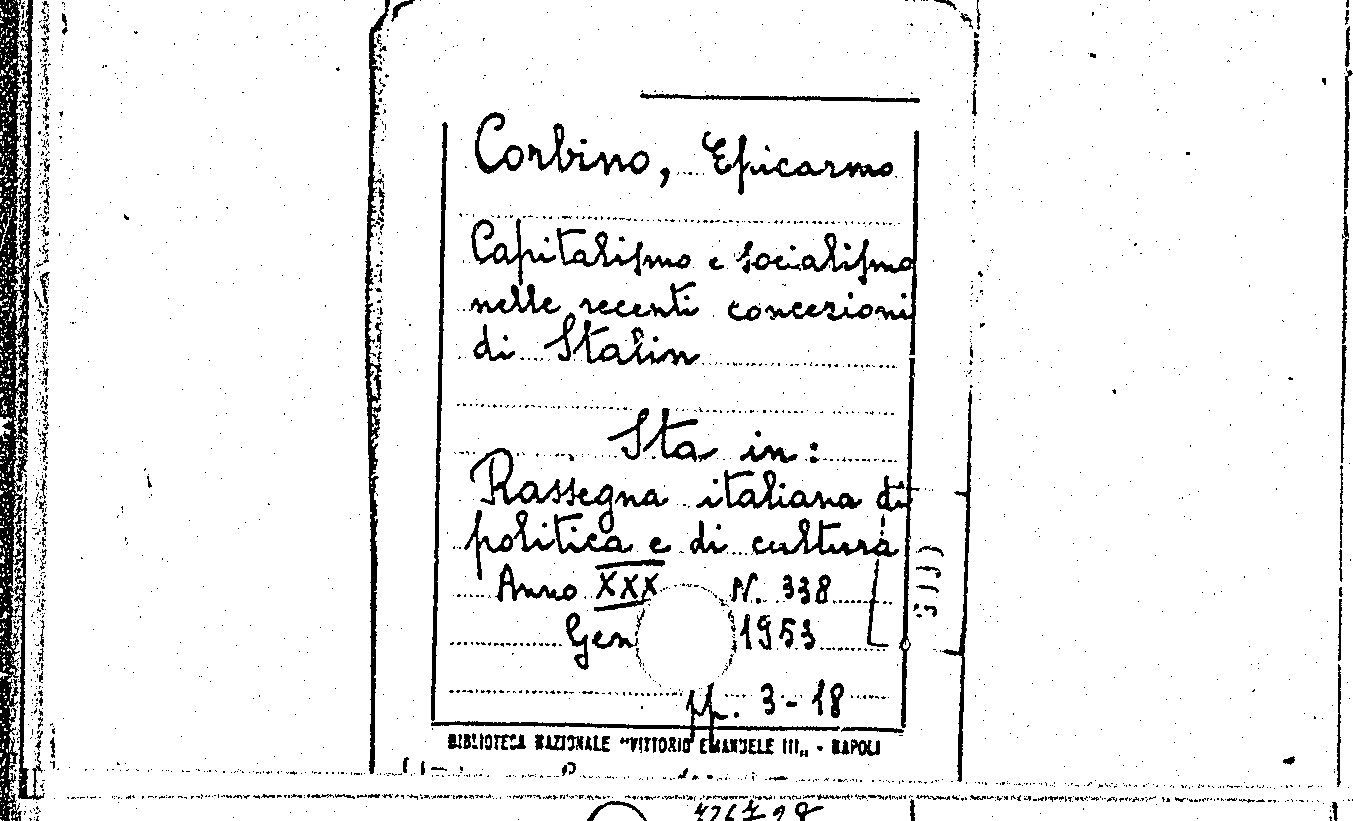 Corbino, Epicarmo
Capitalismo e socialismo
nelle recenti concezioni
di Stalin
Sta in:
Rassegna italiana di
politica e di cultura
Anno XXX N. 338
Gen 1953
pp. 3-18
BIBLIOTECA NAZIONALE "VITTORIO EMANUELE III„ - NAPOLI